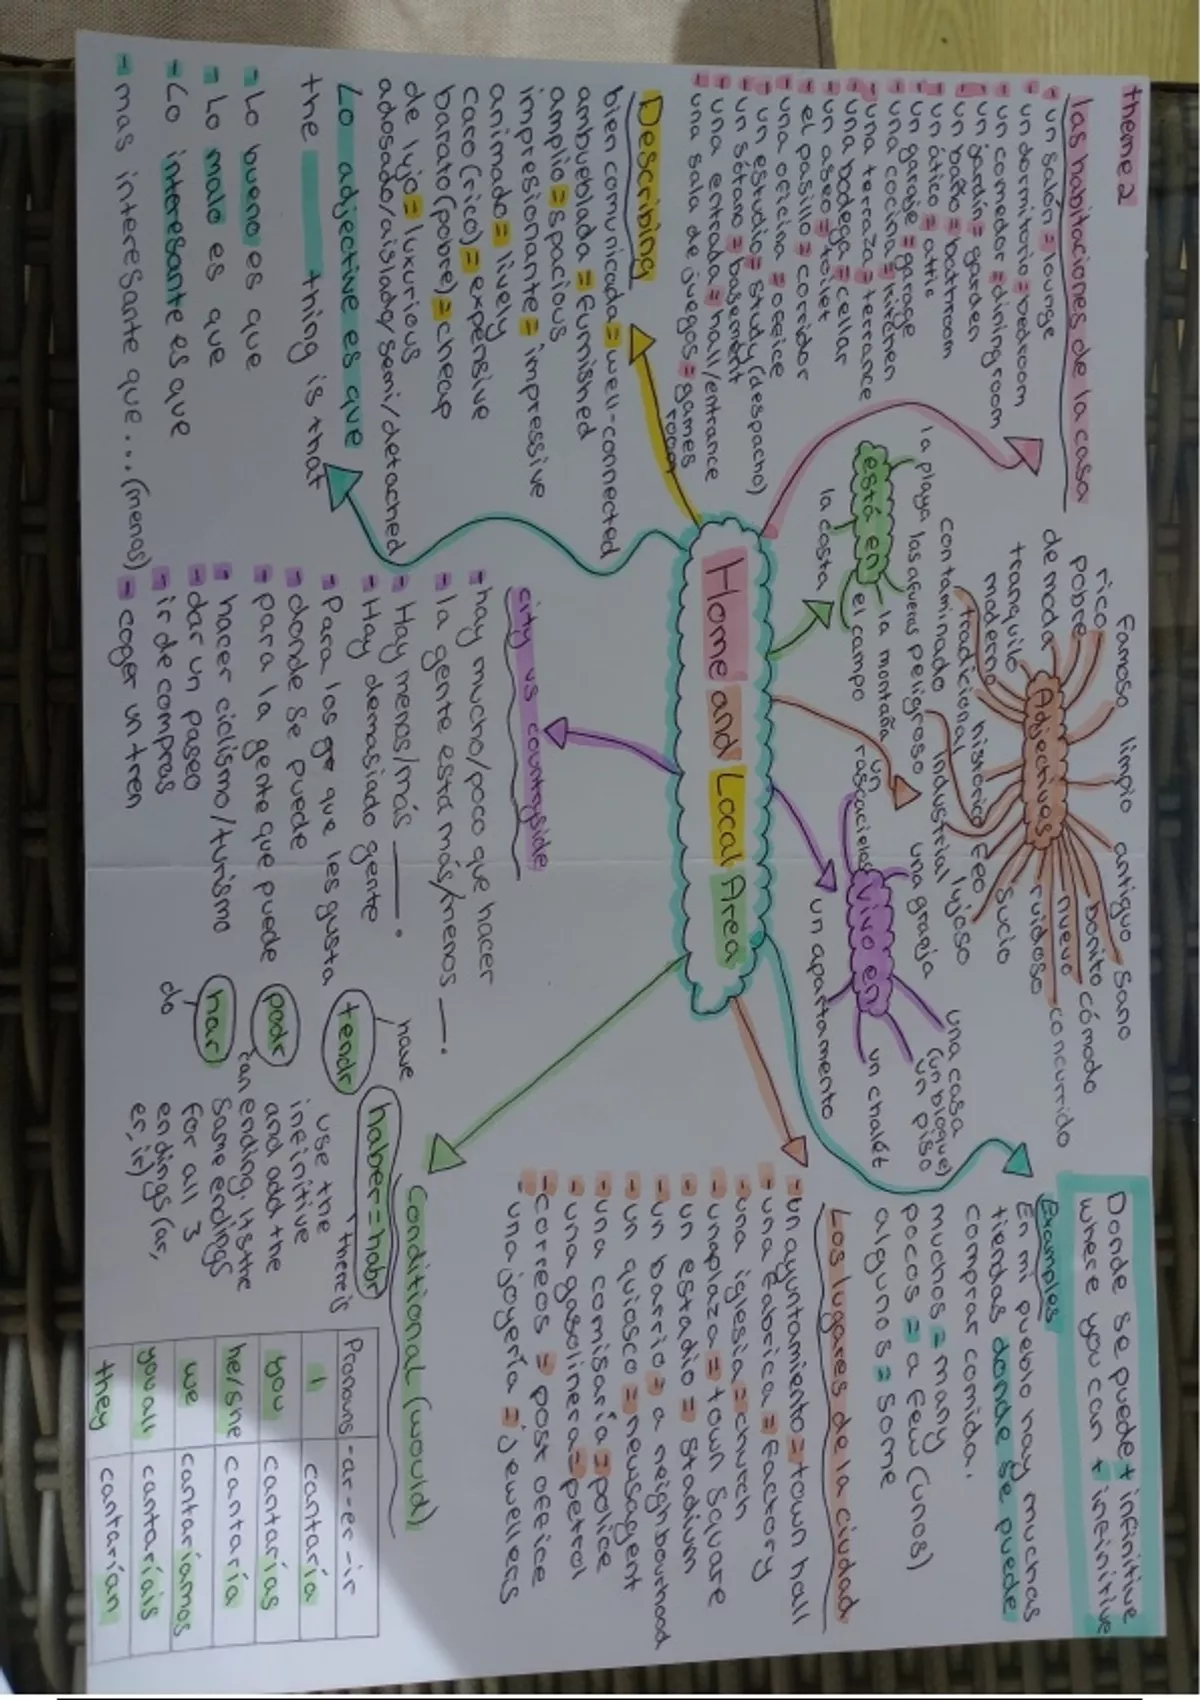 theme 2
las habitaciones de la casa
- un salón = lounge
- un dormitorio = bedroom
- un comedor = dining room
- un jardín = garden
- un baño = bathroom
- un ático = attic
- un garaje = garage
- una cocina = kitchen
- una terraza = terrance
- una bodega = cellar
- un aseo = toilet
- el pasillo = corridor
- una oficina = office
- un estudio = study (despacho)
- un sótano = basement
- una entrada = hall/entrance
- una sala de juegos = games room
Describing
bien comunicada = well-connected
ambueblada = furnished
amplio = spacious
impresionante = impressive
animado = lively
caro (rico) = expensive
barato (pobre) = cheap
de lujo = luxurious
adosado/aislado/semi/detached
Lo adjective es que
the thing is that
- Lo bueno es que
- Lo malo es que
- Lo interesante es que
- mas interesante que... (menos)
está en
la playa
la costa
las afueras
la montaña
el campo
Adjectives
rico
famoso
limpio
antiguo
sano
pobre
de moda
tranquilo
moderno
contaminado
tradicional
peligroso
historico
industrial
feo
lujoso
sucio
ruidoso
nuevo
bonito
cómodo
concurrido
Home and Local Area
vivo en
un rascacielos
una granja
un apartamento
una casa
(un bloque)
un piso
un chalét
city vs countryside
- hay mucho/poco que hacer
- la gente está más/menos —.
- Hay menos/más —.
- Hay demasiado gente
- Para los que les gusta
- donde se puede
- para la gente que puede
- hacer ciclismo/turismo
- dar un paseo
- ir de compras
- coger un tren
Donde se puede + infinitive
where you can + infinitive
Examples
En mi pueblo hay muchas
tiendas donde se puede
comprar comida.
muchos = many
pocos = a few (unos)
algunos = some
Los lugares de la ciudad
- un ayuntamiento = town hall
- una fabrica = factory
- una iglesia = church
- una plaza = town square
- un estadio = stadium
- un barrio = a neighbourhood
- un quiosco = newsagent
- una comisaría = police
- una gasolinera = petrol
- correos = post office
- una joyería = jewellers
Conditional (would)
haber = habr
there is
have
tendr
podr
can
har
do
use the
infinitive
and add the
ending. It's the
same endings
for all 3
endings (ar,
er, ir)
Pronouns -ar-er-ir
I cantaría
you cantarías
he/she cantaría
we cantaríamos
you all cantaríais
they cantarían